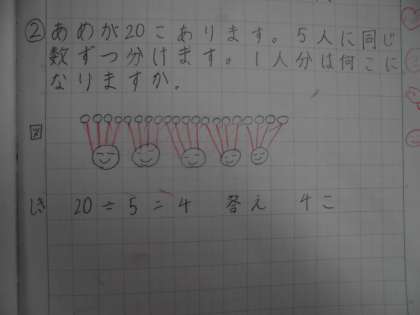 ②あめが20こあります。5人に同じ
数ずつ分けます。1人分は何こに
なりますか。
図
しき 20÷5=4 答え 4こ